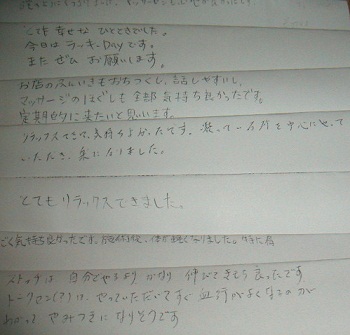 とても幸せなひとときでした。
今日はラッキーDayです。
またぜひお願いします。
お店のふんいきもおちつくし、話しやすいし、
マッサージのほぐしも全部気持ち良かったです。
定期的に来たいと思います。
リラックスできて、気持ちよかったです。凝っている所を中心にやって
いただき、楽になりました。
とてもリラックスできました。
ごく気持ち良かったです。施術後、体が軽くなりました。特に肩
ストレッチは自分でやるよりかなり伸びてきもち良ったです
トークセン(?)は、やっていただいてすぐ血行がよくなるのが
わかって やみつきになりそうです